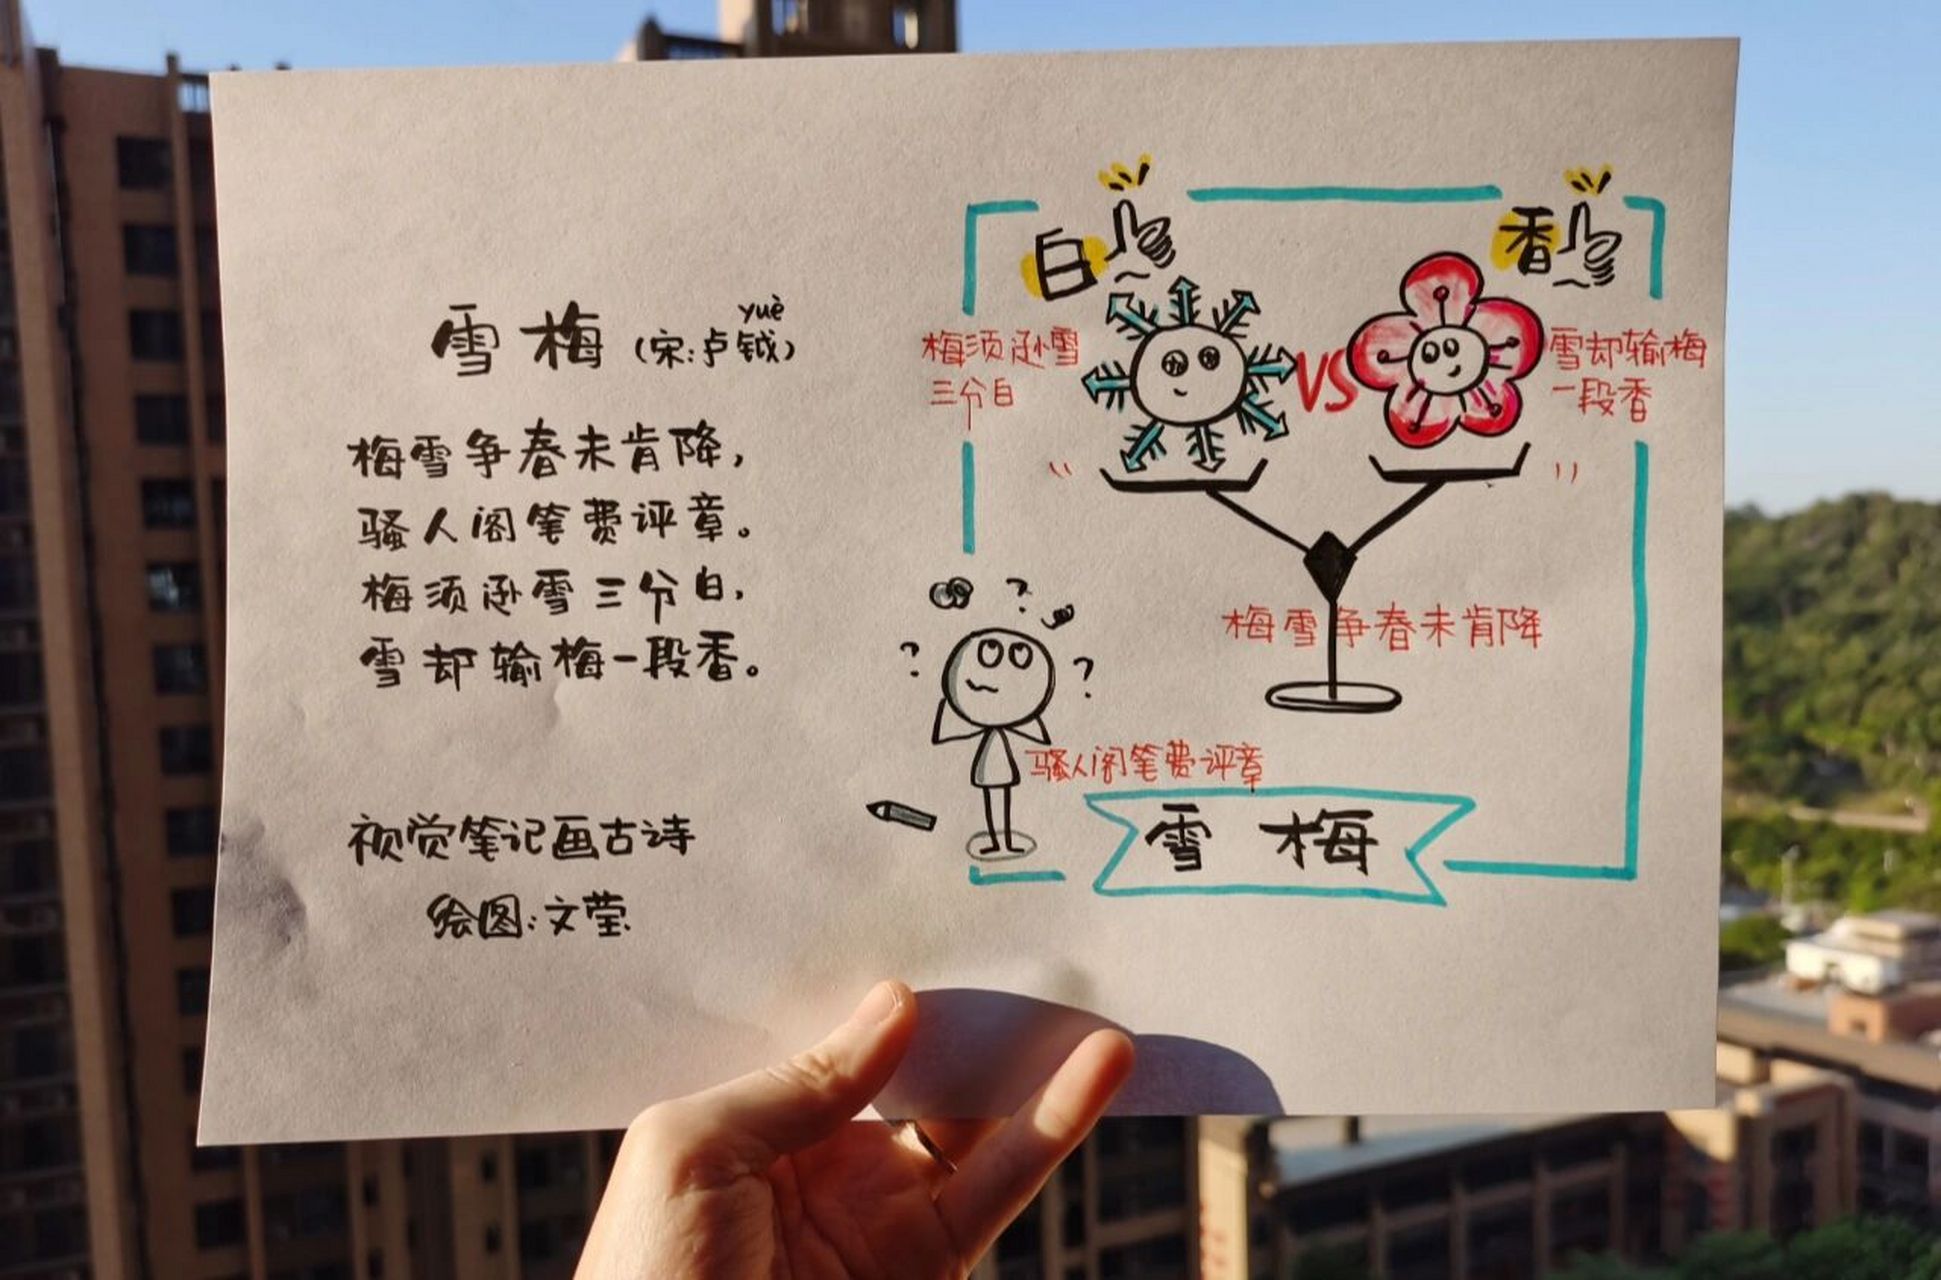 雪梅(宋:卢钺)
yuè
梅雪争春未肯降,
骚人阁笔费评章。
梅须逊雪三分白,
雪却输梅一段香。
视觉笔记画古诗
绘图:文莹
白
香
梅须逊雪
三分白
VS
雪却输梅
一段香
梅雪争春未肯降
? ? ? ?
骚人阁笔费评章
雪梅